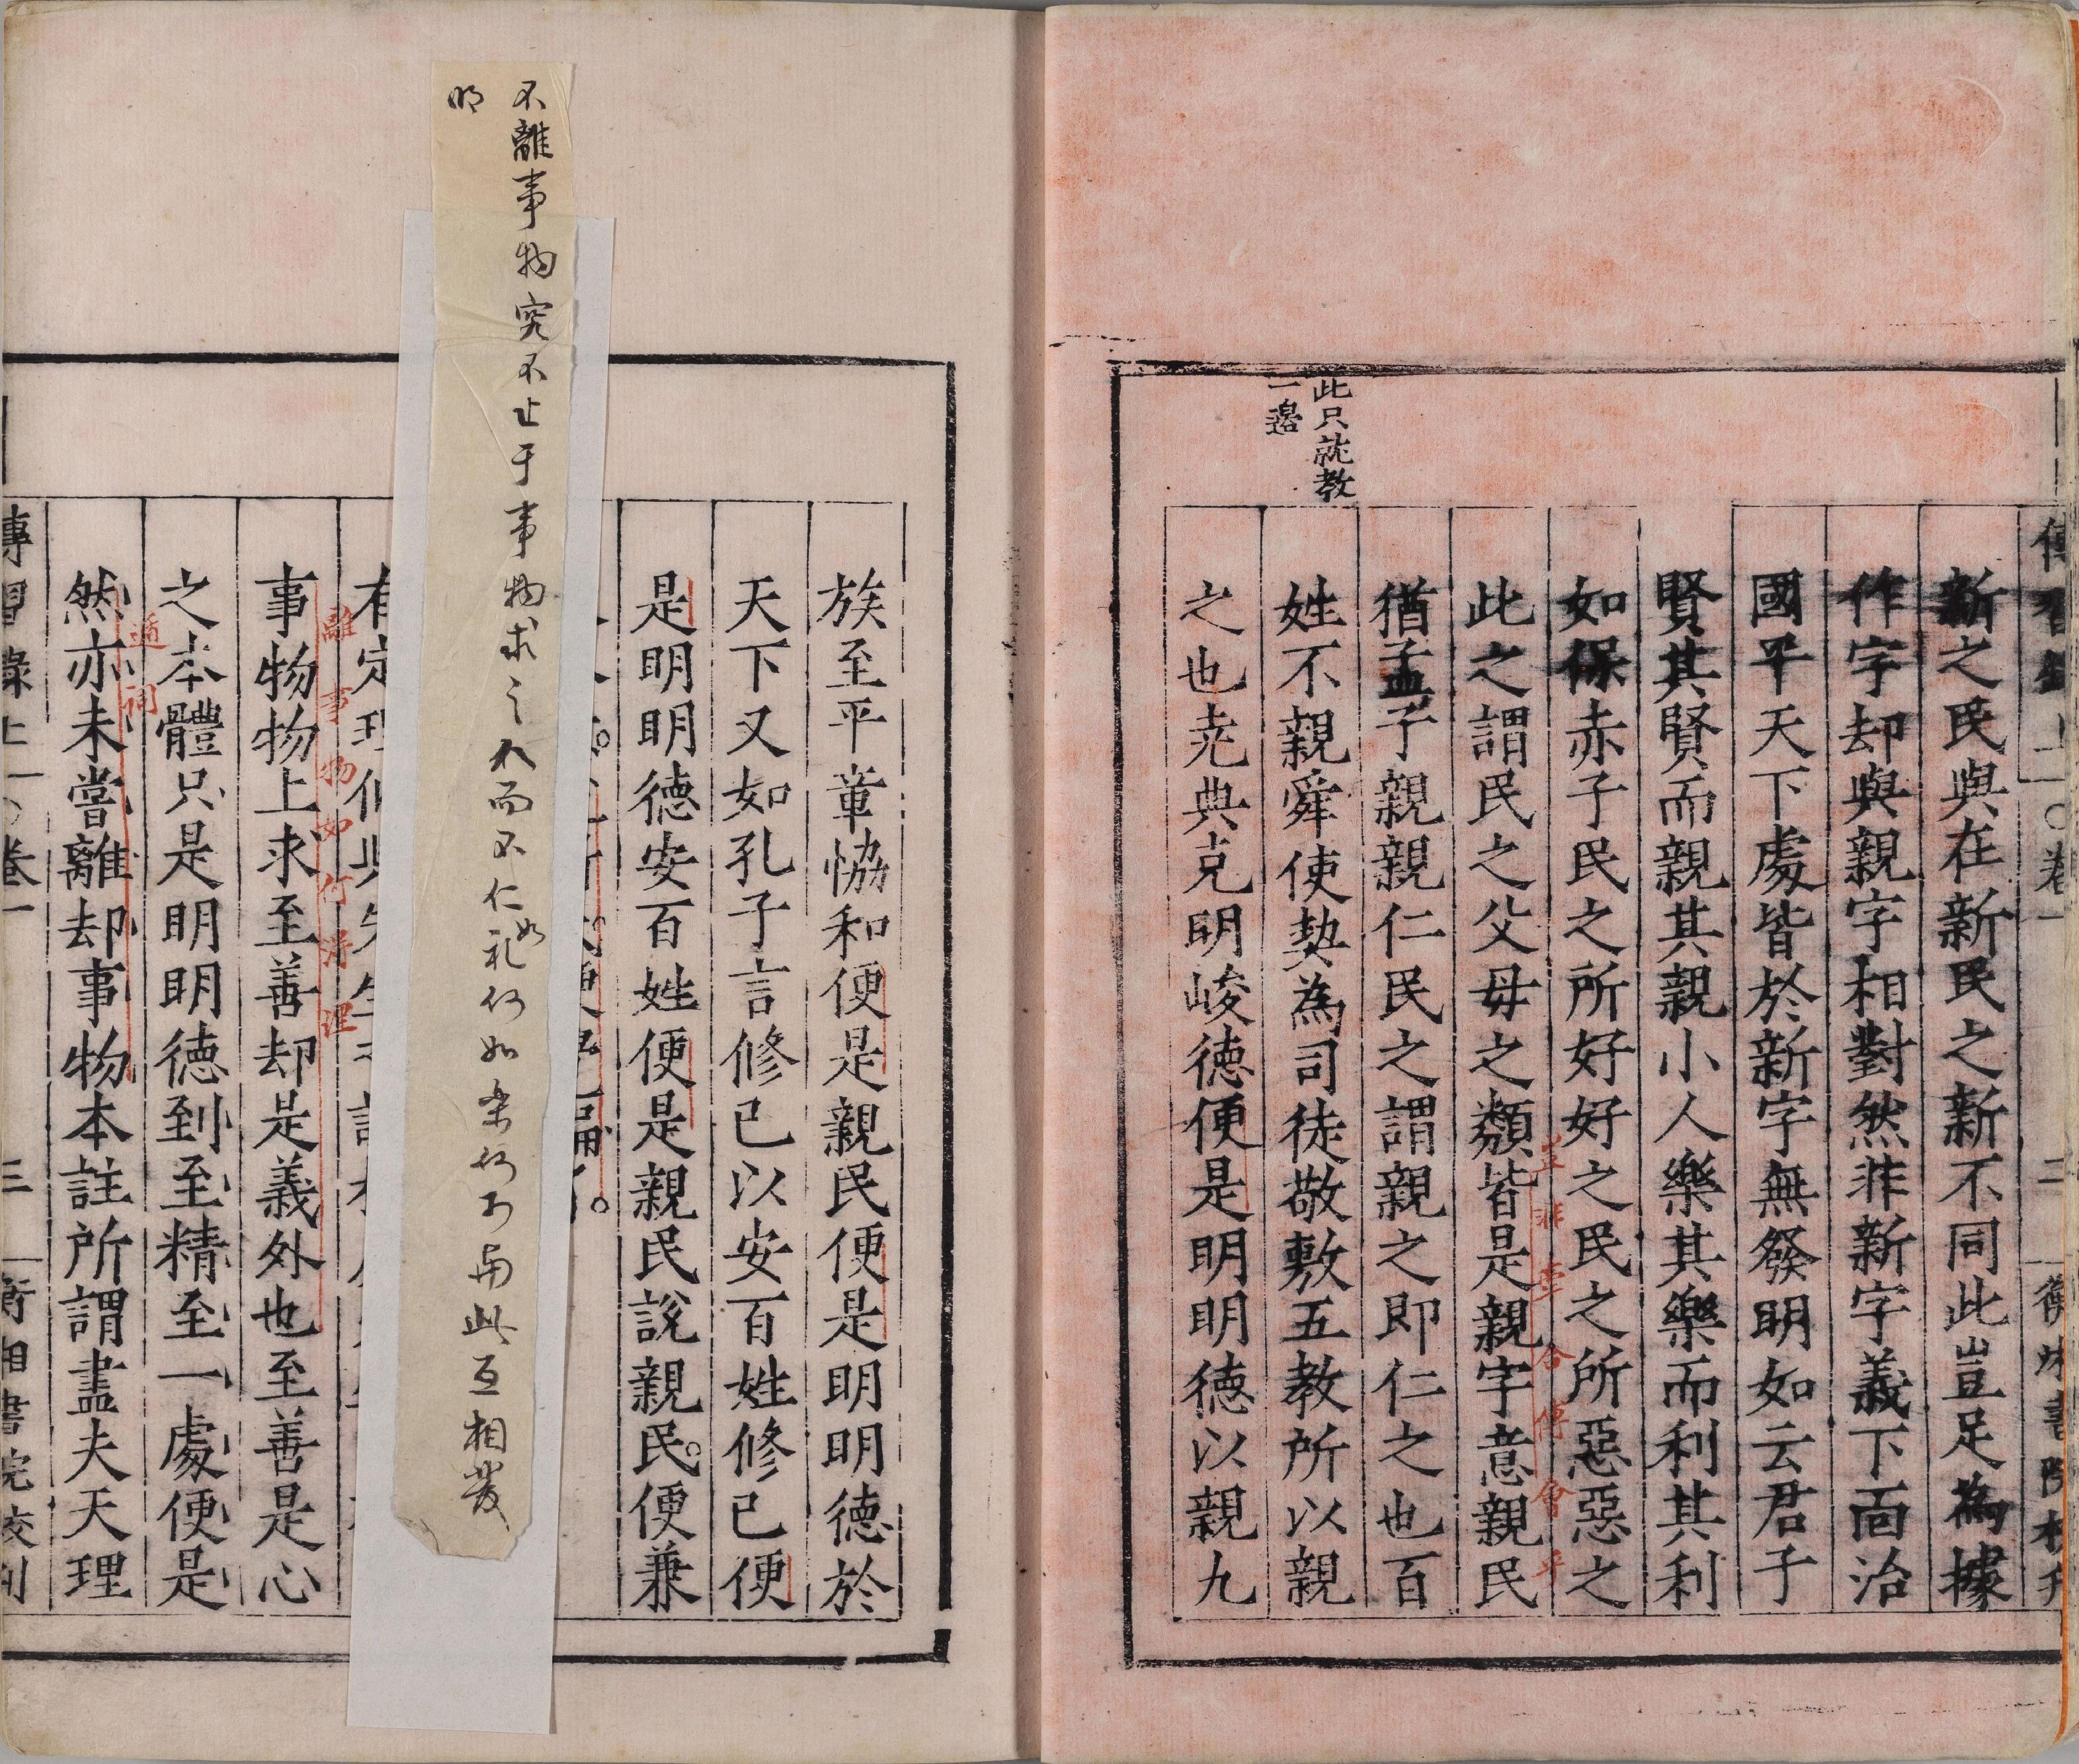 此只就教
一邉
新之民與在新民之新不同此豈足為據
作字却與親字相對然非新字義下靣治
國平天下處皆於新字無發明如云君子
賢其賢而親其親小人樂其樂而利其利
如保赤子民之所好好之民之所惡惡之
此之謂民之父母之類皆是親字意親民
猶孟子親親仁民之謂親之即仁之也百
姓不親舜使契為司徒敬敷五教所以親
之也尭典克明峻徳便是明明徳以親九
族至平章恊和便是親民便是明明徳於
天下又如孔子言修己以安百姓修己便
是明明徳安百姓便是親民說親民便兼
不離事物究不止于事物求之人而不仁如礼何如樂何可与此互相發
明
事物物上求至善却是義外也至善是心
離事物如何得理
之本體只是明明徳到至精至一處便是
遁詞
然亦未嘗離却事物本註所謂盡夫天理
傳習錄上 卷一 三 衡湘書院校刊